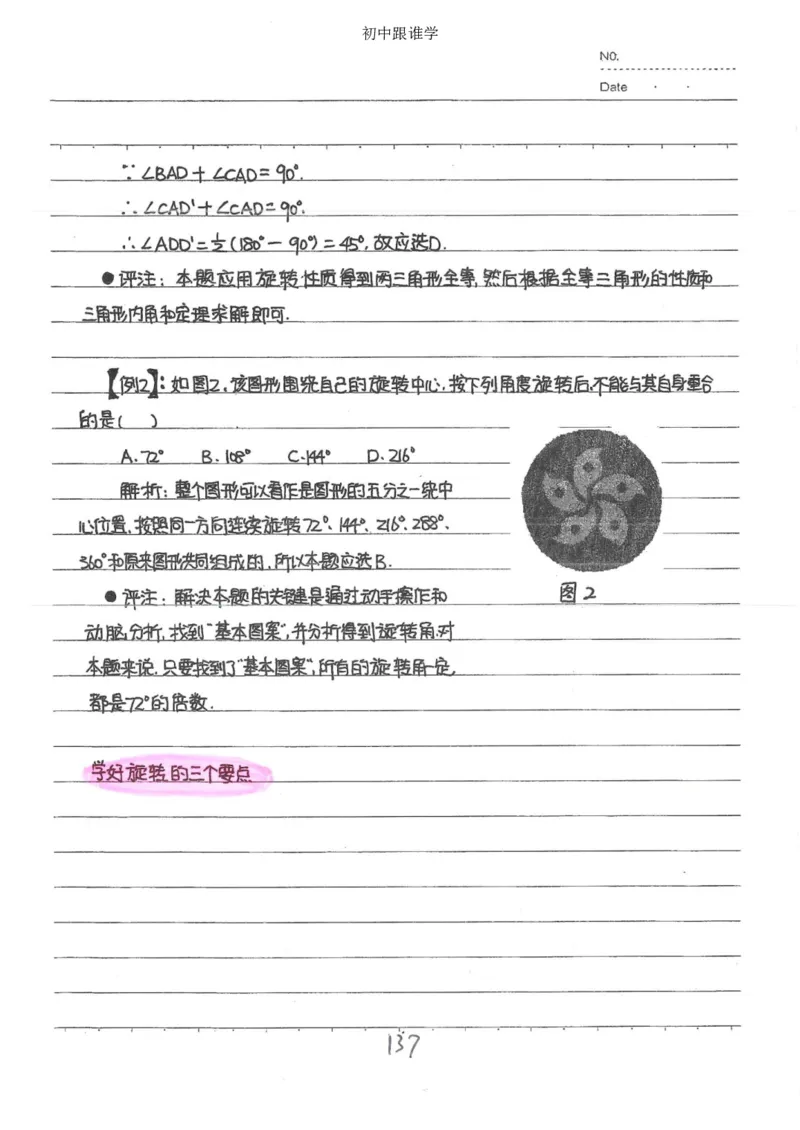 初中跟谁学
NO.
Date
∵∠BAD+∠CAD=90°.
∴∠CAD'+∠CAD=90°.
∴∠ADD'=½(180°-90°)=45°,故应选D.
●评注:本题应用旋转性质得到两三角形全等,然后根据全等三角形的性质和
三角形内角和定理求解即可.
【例2】:如图2,该图形围绕自己的旋转中心,按下列角度旋转后,不能与其自身重合
的是( )
A.72° B.108° C.144° D.216°
解析:整个图形可以看作是图形的五分之一绕中
心位置,按照同一方向连续旋转72°、144°、216°、288°、
360°和原来图形共同组成的,所以本题应选B.
图2
●评注:解决本题的关键是通过动手操作和
动脑分析,找到"基本图案",并分析得到旋转角.对
本题来说,只要找到了"基本图案",所有的旋转角一定
都是72°的倍数.
学好旋转的三个要点
137